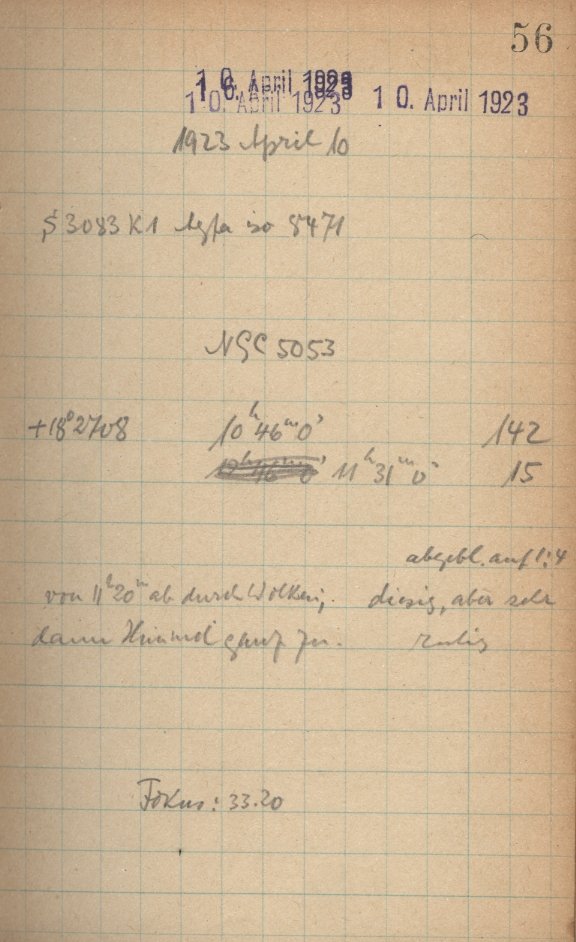 56
10. April 1923
10. April 1923 10. April 1923
1923 April 10
S 3083 K1 Agfa iso 8471
NGC 5053
+18°2708 10ʰ46ᵐ0ˢ 142
10ʰ46ᵐ0ˢ 11ʰ31ᵐ0ˢ 15
abgebl. auf 1:4
von 11ʰ20ᵐ ab durch Wolken; diesig, aber sehr
dann Himmel ganz zu. ruhig
Fokus: 33.20